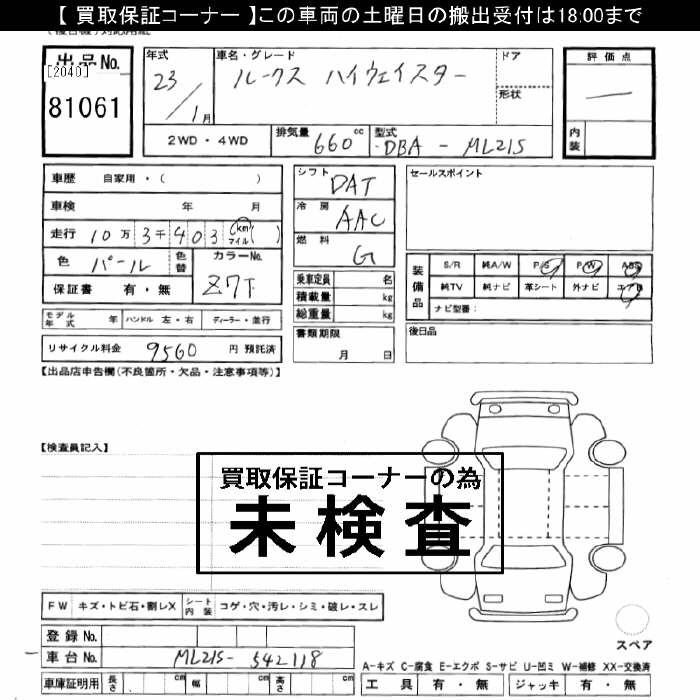 【 買取保証コーナー 】この車両の土曜日の搬出受付は18:00まで
出品No.
[2040]
81061
年式
23/1月
車名・グレード
ルークス ハイウェイスター
ドア
形状
評価点
内装
2WD・4WD
排気量
660cc
型式
DBA - ML21S
車歴 自家用・( )
車検 年 月
走行 10万3千403 (km マイル)
色 パール
色替
カラーNo.
Z7T
保証書 有・無
シフト
DAT
冷房
AAC
燃料
G
乗車定員 名
積載量 kg
総重量 kg
書類期限
月 日
セールスポイント
装備品
S/R 純A/W P/S P/W ABS
純TV 純ナビ 革シート 外ナビ エアB
ナビ型番:
後日品
モデル年式 年 ハンドル 左・右 ディーラー・並行
リサイクル料金 9560 円 預託済
【出品店申告欄(不良箇所・欠品・注意事項等)】
【検査員記入】
買取保証コーナーの為
未検査
FW キズ・トビ石・割レX シート内装 コゲ・穴・汚レ・シミ・破レ・スレ
登録No.
車台No. ML21S-542118
車庫証明用 長さ cm 幅 cm 高さ cm
スペア
A-キズ C-腐食 E-エクボ S-サビ U-凹ミ W-補修 XX-交換済
工具 有・無 ジャッキ 有・無